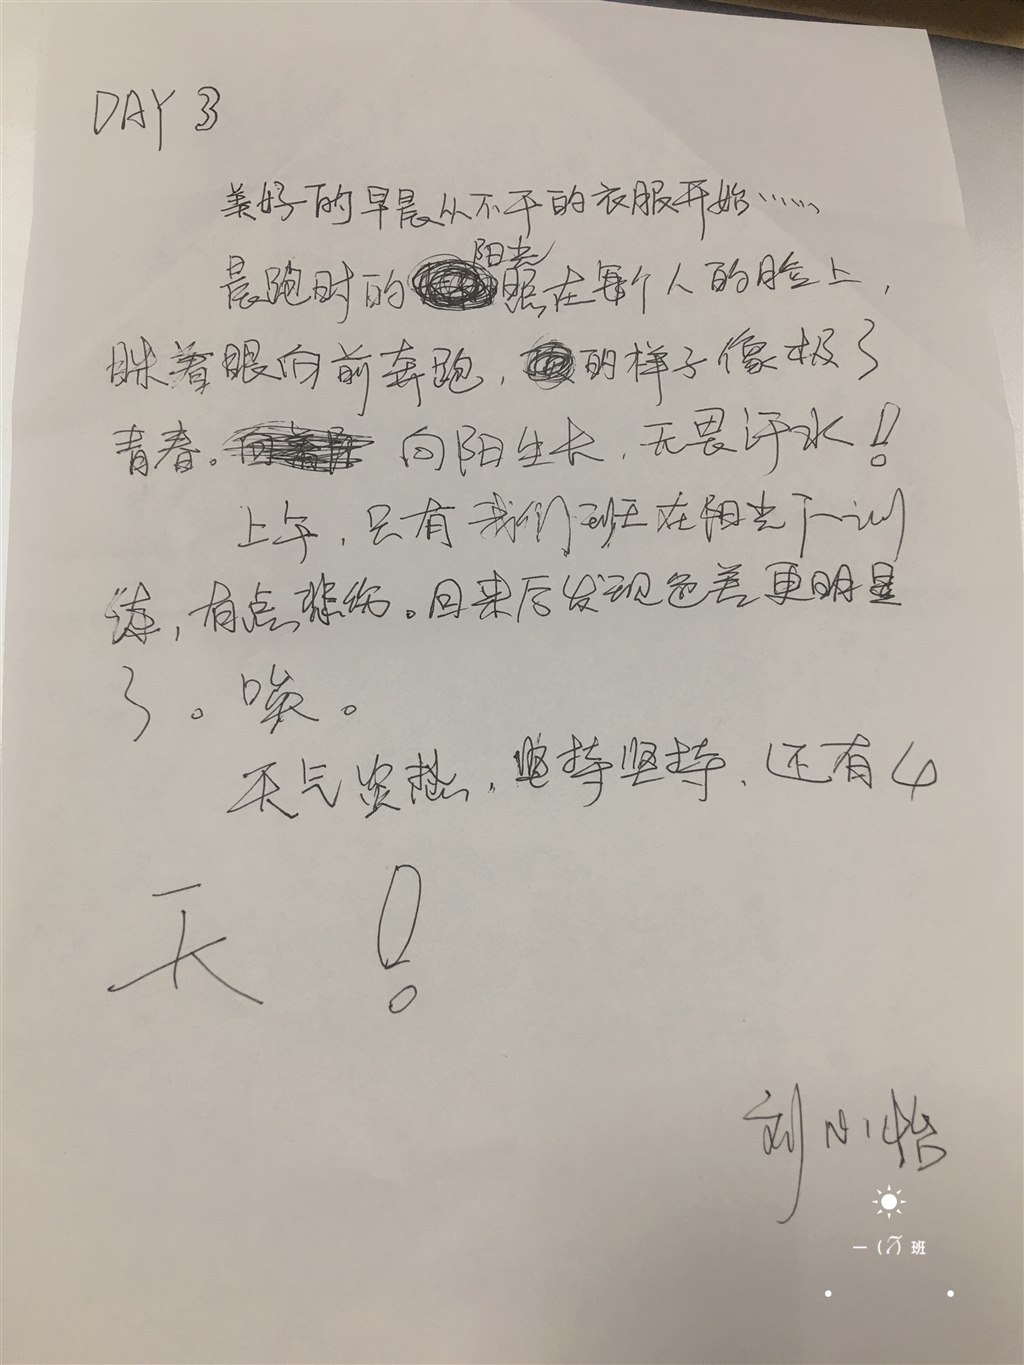 DAY 3
美好的早晨从不干的衣服开始……
阳光
晨跑时的照在每个人的脸上,
眯着眼向前奔跑,的样子像极了
青春。向阳生长,无畏汗水!
上午,只有我们班在阳光下训
练,有点悲伤。回来后发现色差更明显
了。唉。
天气炎热,坚持坚持、还有4
天!
刘小怡
一(7)班